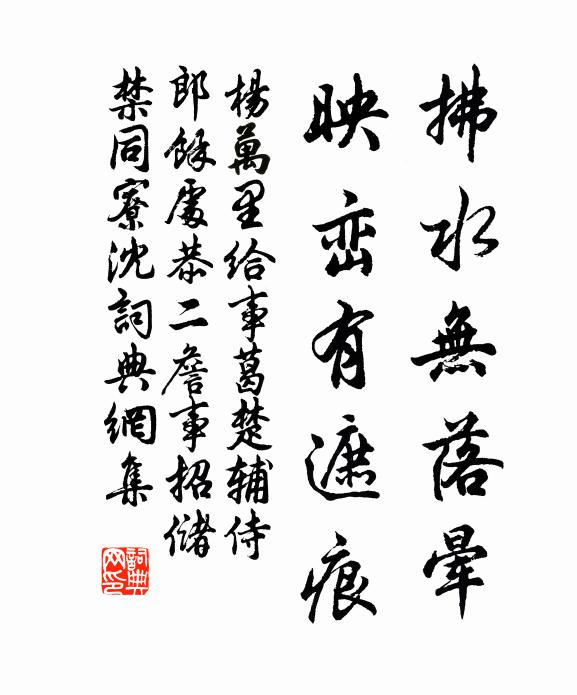 拂水無落暈
映巒有遮痕
楊萬里給事葛楚輔侍
郎餘處恭二詹事招儲
禁同寮沈詞典網集
詞典網印